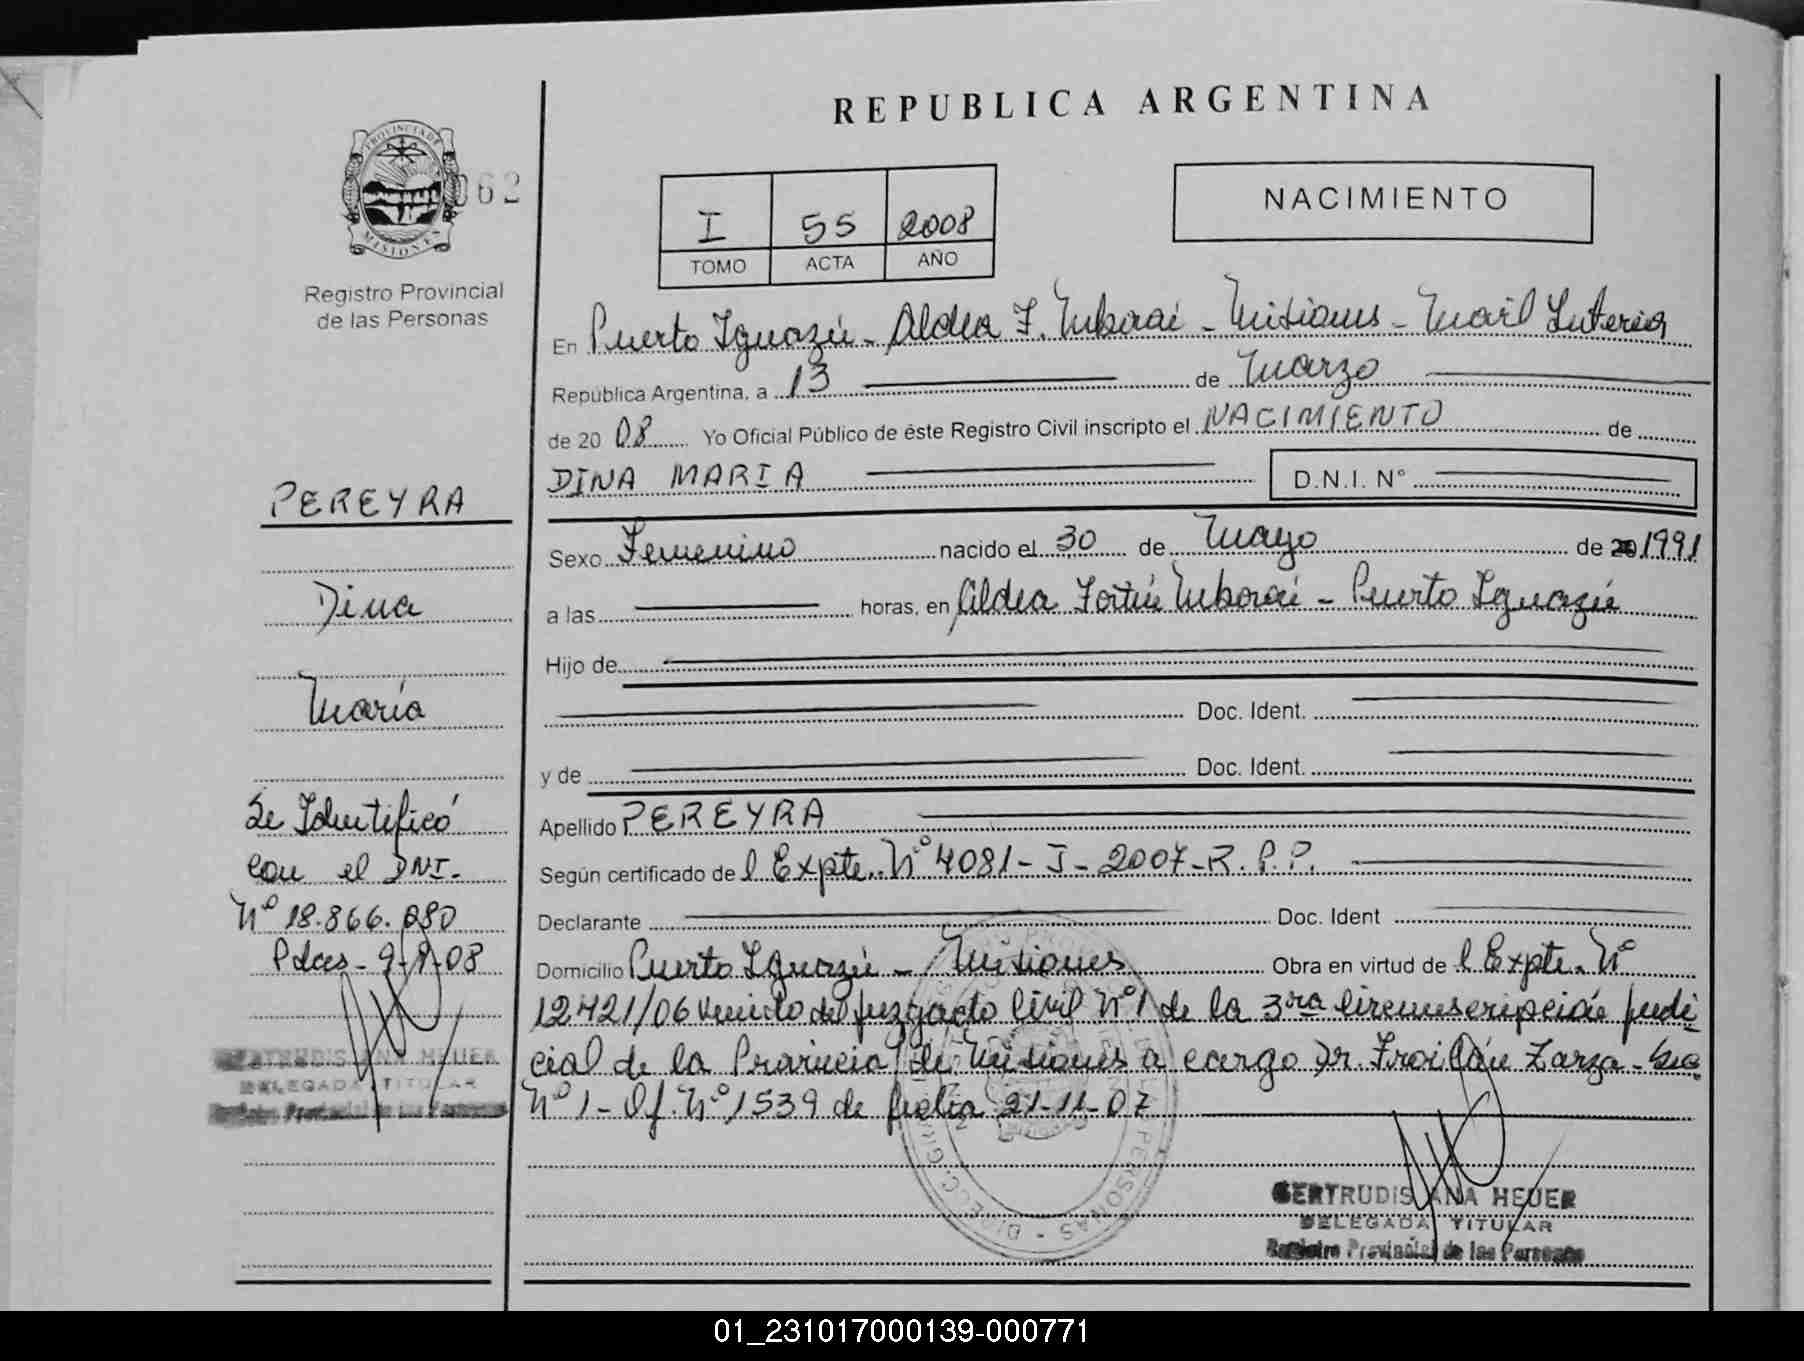 REPUBLICA ARGENTINA
PROVINCIA DE
MISIONES
062
Registro Provincial
de las Personas
I 55 2008
TOMO ACTA AÑO
NACIMIENTO
En Puerto Iguazú - Aldea F. Mborai - Misiones - Maril Interior
República Argentina, a 13 de Marzo
de 20 08 Yo Oficial Público de éste Registro Civil inscripto el NACIMIENTO de
DINA MARIA D.N.I. N°
Sexo Femenino nacido el 30 de Mayo de 20 1991
a las horas, en Aldea Fortín Mborai - Puerto Iguazú
Hijo de
Doc. Ident.
y de Doc. Ident.
Apellido PEREYRA
Según certificado de l Expte. N° 4081 - J - 2007 - R.P.P.
Declarante Doc. Ident
Domicilio Puerto Iguazú - Misiones Obra en virtud de l Expte. N°
12421/06 venido del juzgado Civil N° 1 de la 3ra Circunscripción judi
cial de la Provincia de Misiones a cargo Dr. Froilán Zarza - Sec.
N° 1 - Of. N° 1539 de fecha 21-11-07
GERTRUDIS ANA HEUER
DELEGADA TITULAR
Registro Provincial de las Personas
PEREYRA
Dina
María
Se Identificó
con el DNI.
N° 18.866.080
Pdas - 9-9-08
GERTRUDIS ANA HEUER
DELEGADA TITULAR
Registro Provincial de las Personas
01_231017000139-000771